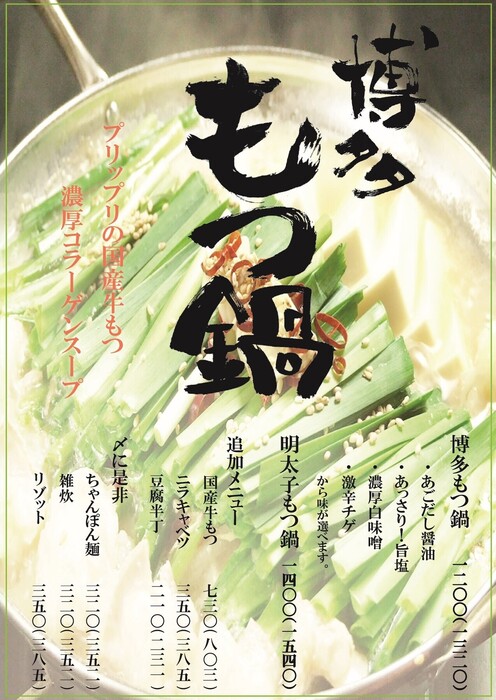 博多
もつ鍋
プリップリの国産牛もつ
濃厚コラーゲンスープ
博多もつ鍋 一二〇〇(一三二〇)
・あごだし醤油
・あっさり!旨塩
・濃厚白味噌
・激辛チゲ
から味が選べます。
明太子もつ鍋 一四〇〇(一五四〇)
追加メニュー
国産牛もつ 七三〇(八〇三)
ニラキャベツ 三五〇(三八五)
豆腐半丁 二一〇(二三一)
〆に是非
ちゃんぽん麺 三二〇(三五二)
雑炊 三二〇(三五二)
リゾット 三五〇(三八五)